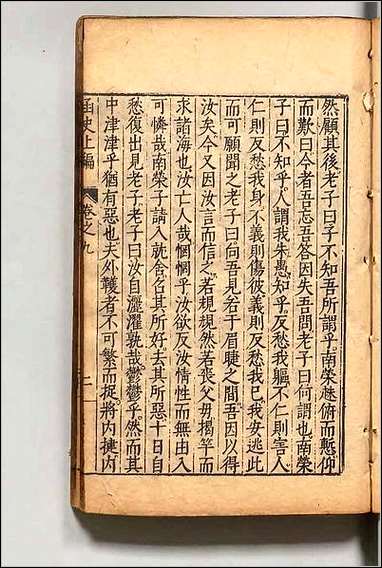 然顧其後老子曰子不知吾所謂乎南榮趎俯而慙仰
而歎曰今者吾忘吾答因失吾問老子曰何謂也南榮
子曰不知乎人謂我朱愚知乎反愁我軀不仁則害人
仁則反愁我身不義則傷彼義則反愁我已我安逃此
而可願聞之老子曰向吾見若于眉睫之間吾因以得
汝矣今又因汝言而信之若規規然若喪父毋揭竿而
求諸海也汝亡人哉惘惘乎汝欲反汝情性而無由入
可憐哉南榮子請入就舍召其所好去其所惡十日自
愁復出見老子老子曰汝自灑濯孰哉鬱鬱乎然而其
中津津乎猶有惡也夫外韄者不可繁而捉將內揵內
函史上編 卷之九 二